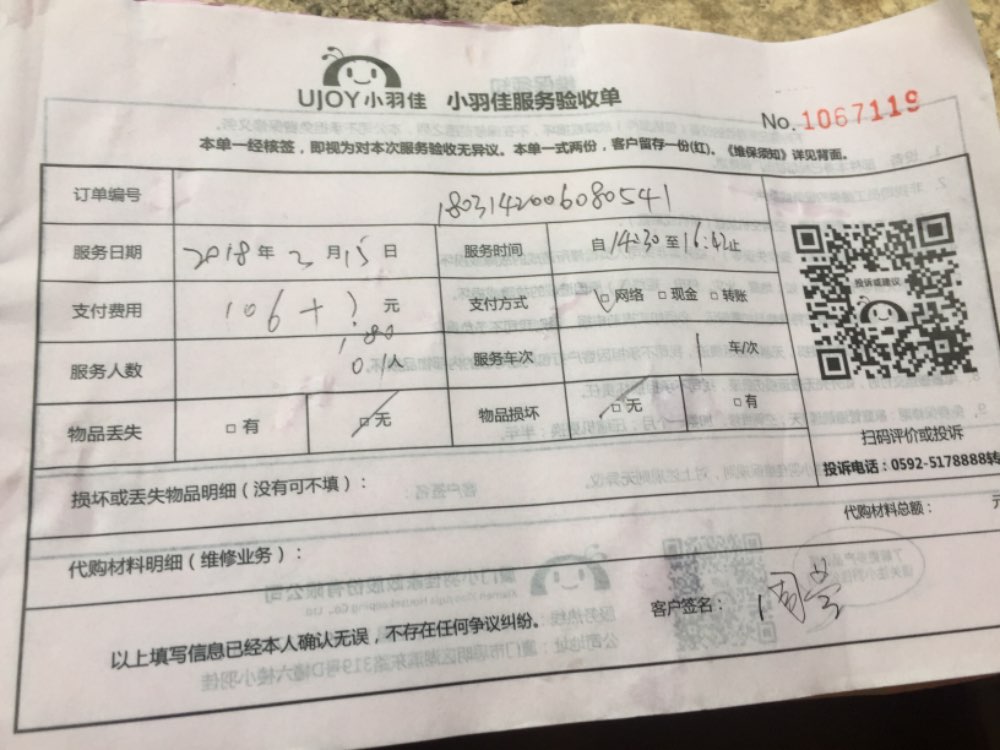 UJOY小羽佳 小羽佳服务验收单
No. 1067119
本单一经核签，即视为对本次服务验收无异议。本单一式两份，客户留存一份(红)。《维保须知》详见背面。
订单编号 180314200608054​1
服务日期 2018年2月15日 服务时间 自14:30至16:42止
支付费用 106+ 元 支付方式 □网络 □现金 □转账
投诉或建议
服务人数 服务车次 1车/次
物品丢失 □有 □无 物品损坏 □无 □有
扫码评价或投诉
投诉电话：0592-5178888转
损坏或丢失物品明细（没有可不填）：
代购材料总额： 元
代购材料明细（维修业务）：
客户签名：
以上填写信息已经本人确认无误，不存在任何争议纠纷。